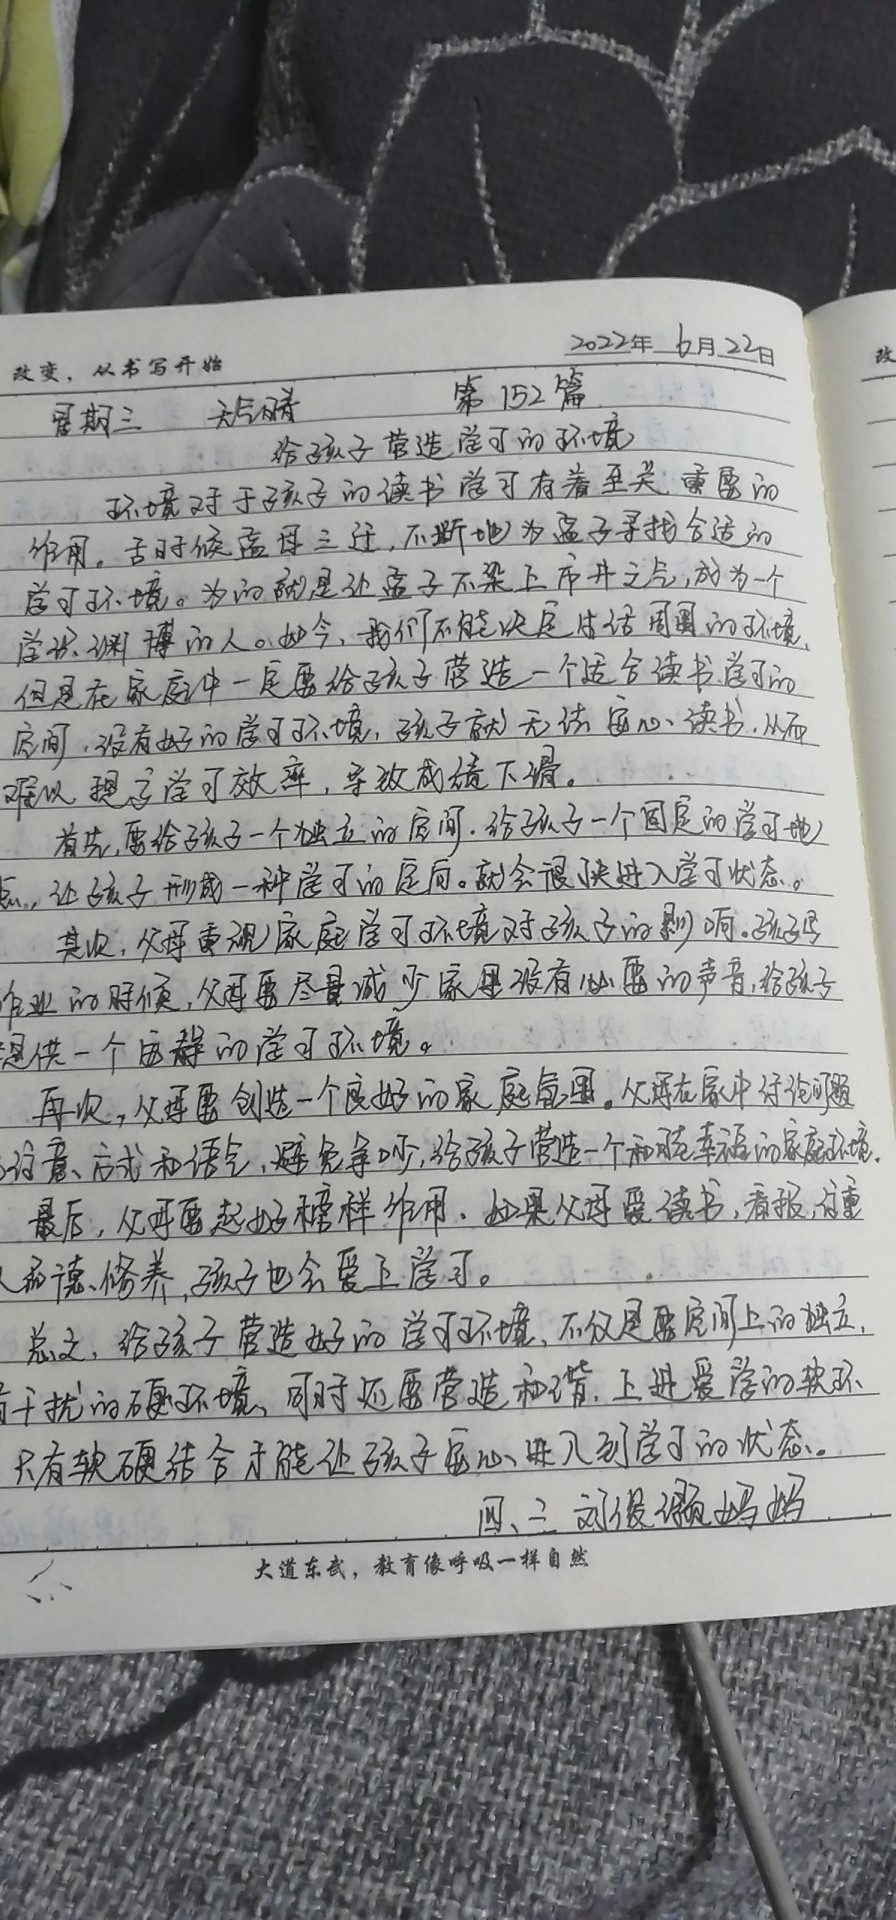 改变，从书写开始
2022年 6月22日
改
星期三 天气晴 第152篇
给孩子营造学习的环境
环境对于孩子的读书学习有着至关重要的
作用。古时候孟母三迁，不断地为孟子寻找合适的
学习环境。为的就是让孟子不染上市井之气，成为一个
学识渊博的人。如今，我们不能决定生活周围的环境，
但是在家庭中一定要给孩子营造一个适合读书学习的
房间，没有好的学习环境，孩子就无法安心读书，从而
难以提高学习效率，导致成绩下滑。
首先，要给孩子一个独立的房间，给孩子一个固定的学习地
点，让孩子形成一种学习的定向。就会很快进入学习状态。
其次，父母重视家庭学习环境对孩子的影响。孩子写
作业的时候，父母要尽量减少家里没有必要的声音，给孩子
提供一个安静的学习环境。
再次，父母要创造一个良好的家庭氛围。父母在家中讨论问题
注意方式和语气，避免争吵，给孩子营造一个和睦幸福的家庭环境。
最后，父母要起好榜样作用，如果父母爱读书，看报，注重
人品德修养，孩子也会爱上学习。
总之，给孩子营造好的学习环境，不仅是要房间上的独立，
有干扰的硬环境，同时还要营造和谐，上进爱学的软环
只有软硬结合才能让孩子安心进入到学习的状态。
四、三 刘俊灏妈妈
大道东武，教育像呼吸一样自然